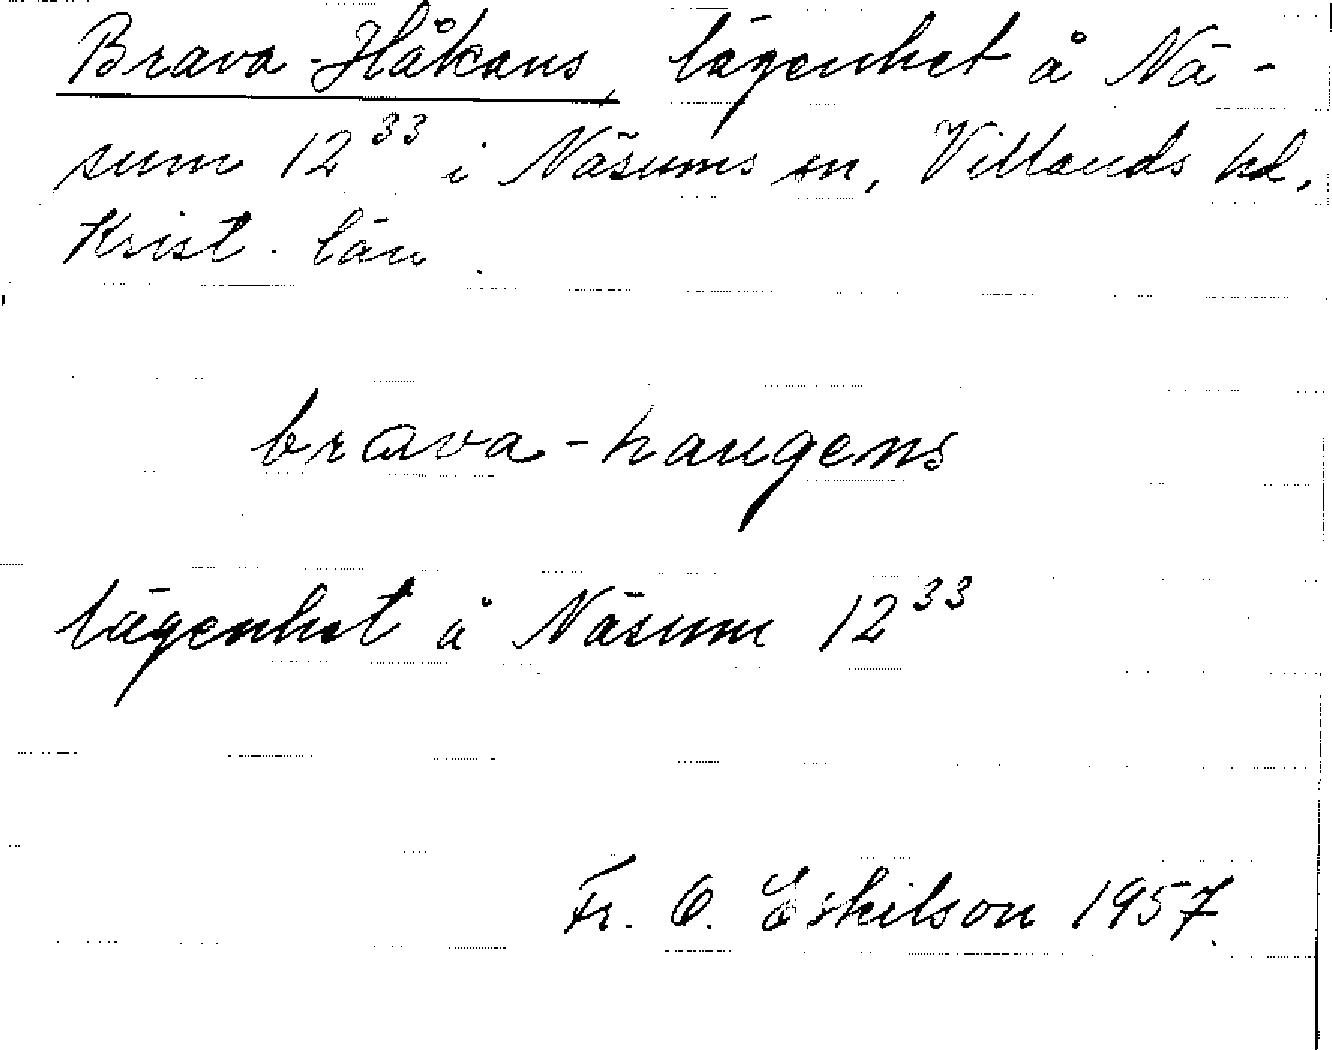 Brava-Håkans, lägenhet å Nä-
sum 12³³ i Näsums sn, Villands hd,
Krist. län.
brava-haugens
lägenhet å Näsum 12³³
Fr. O. Eskilson 1957.